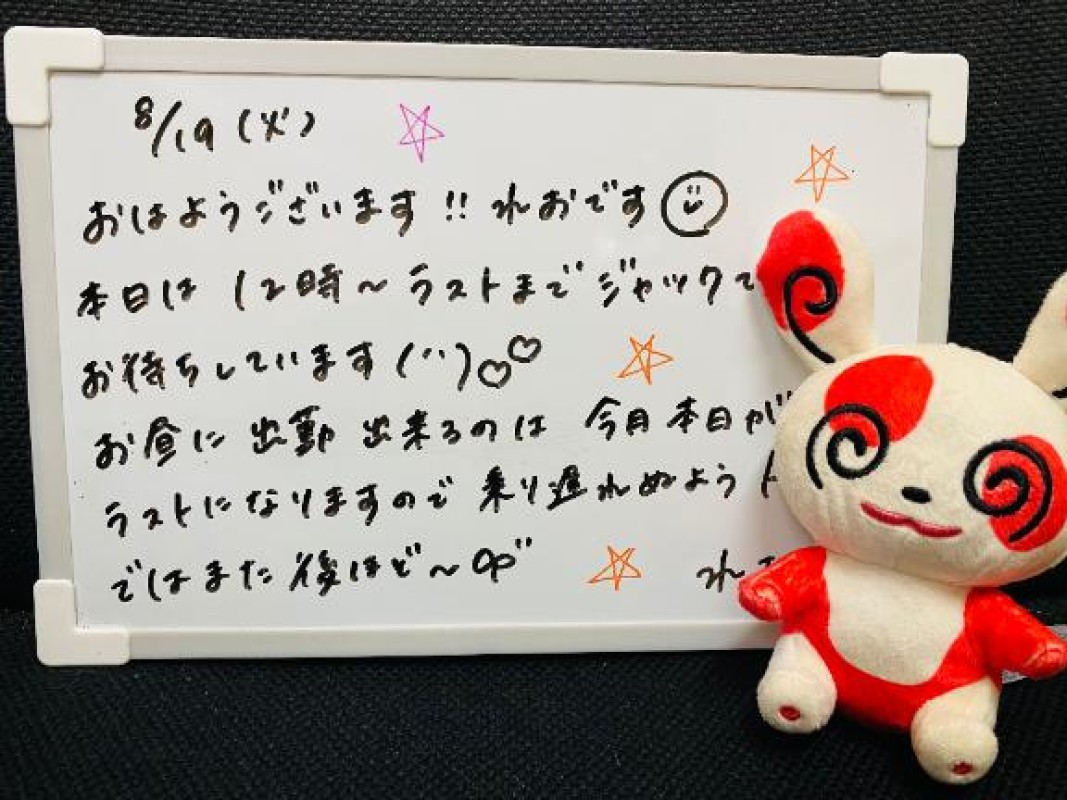 8/19(火)
おはようございます!! れおです
本日は 12時〜ラストまでジャックで
お待ちしています(¨)♡♡
お昼に出勤出来るのは 今月本日が
ラストになりますので 乗り遅れぬよう
ではまた後ほど〜
れ